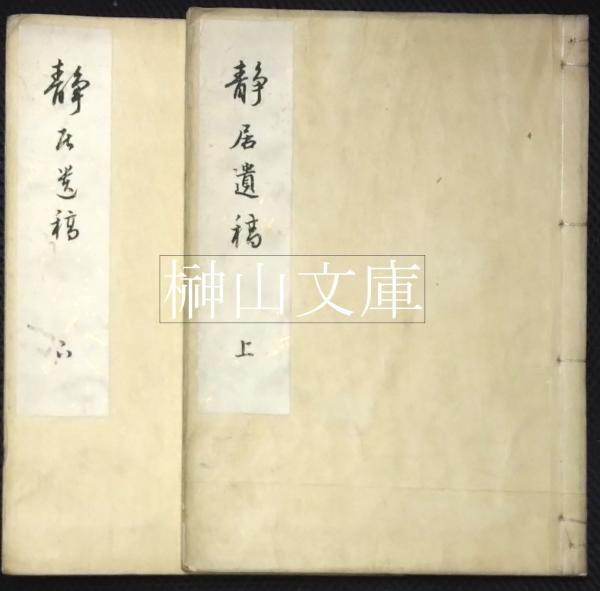 靜居遺稿
上
靜居遺稿
下
榊山文庫